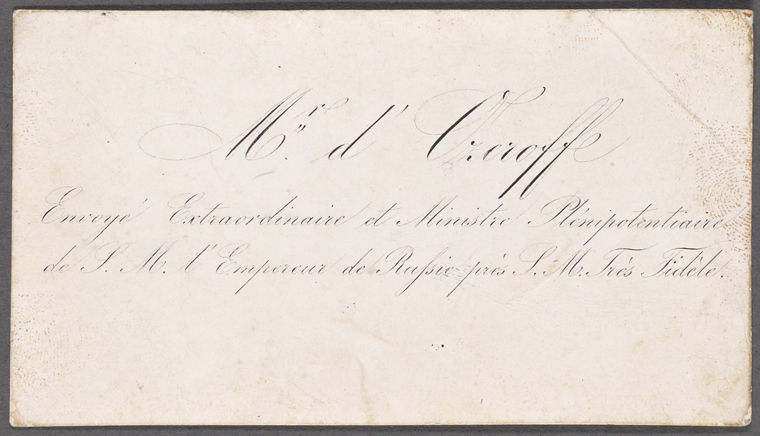 Mr. d' Ozeroff
Envoyé Extraordinaire et Ministre Plénipotentiaire
de S. M. l'Empereur de Russie près S. M. Très Fidèle.